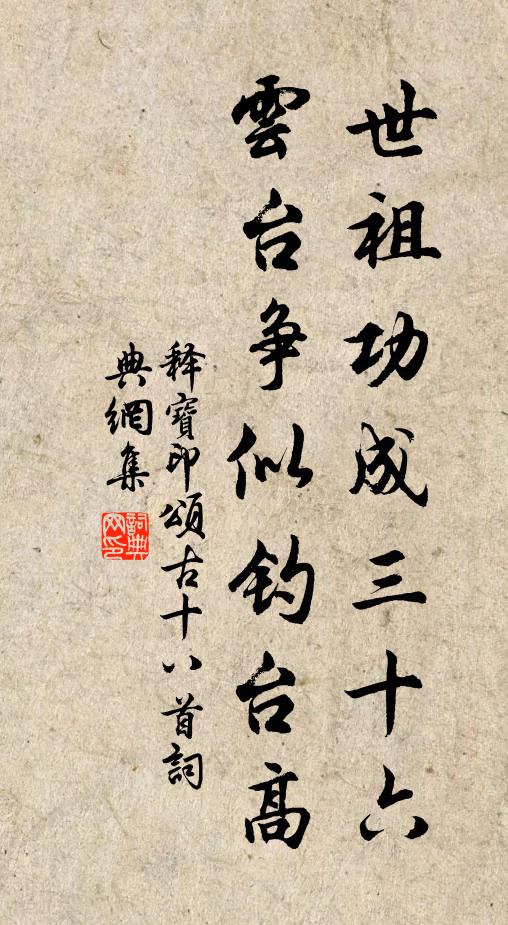 世祖功成三十六
雲台争似钓台高
释寶印頌古十八首詞
典網集
詞典网印